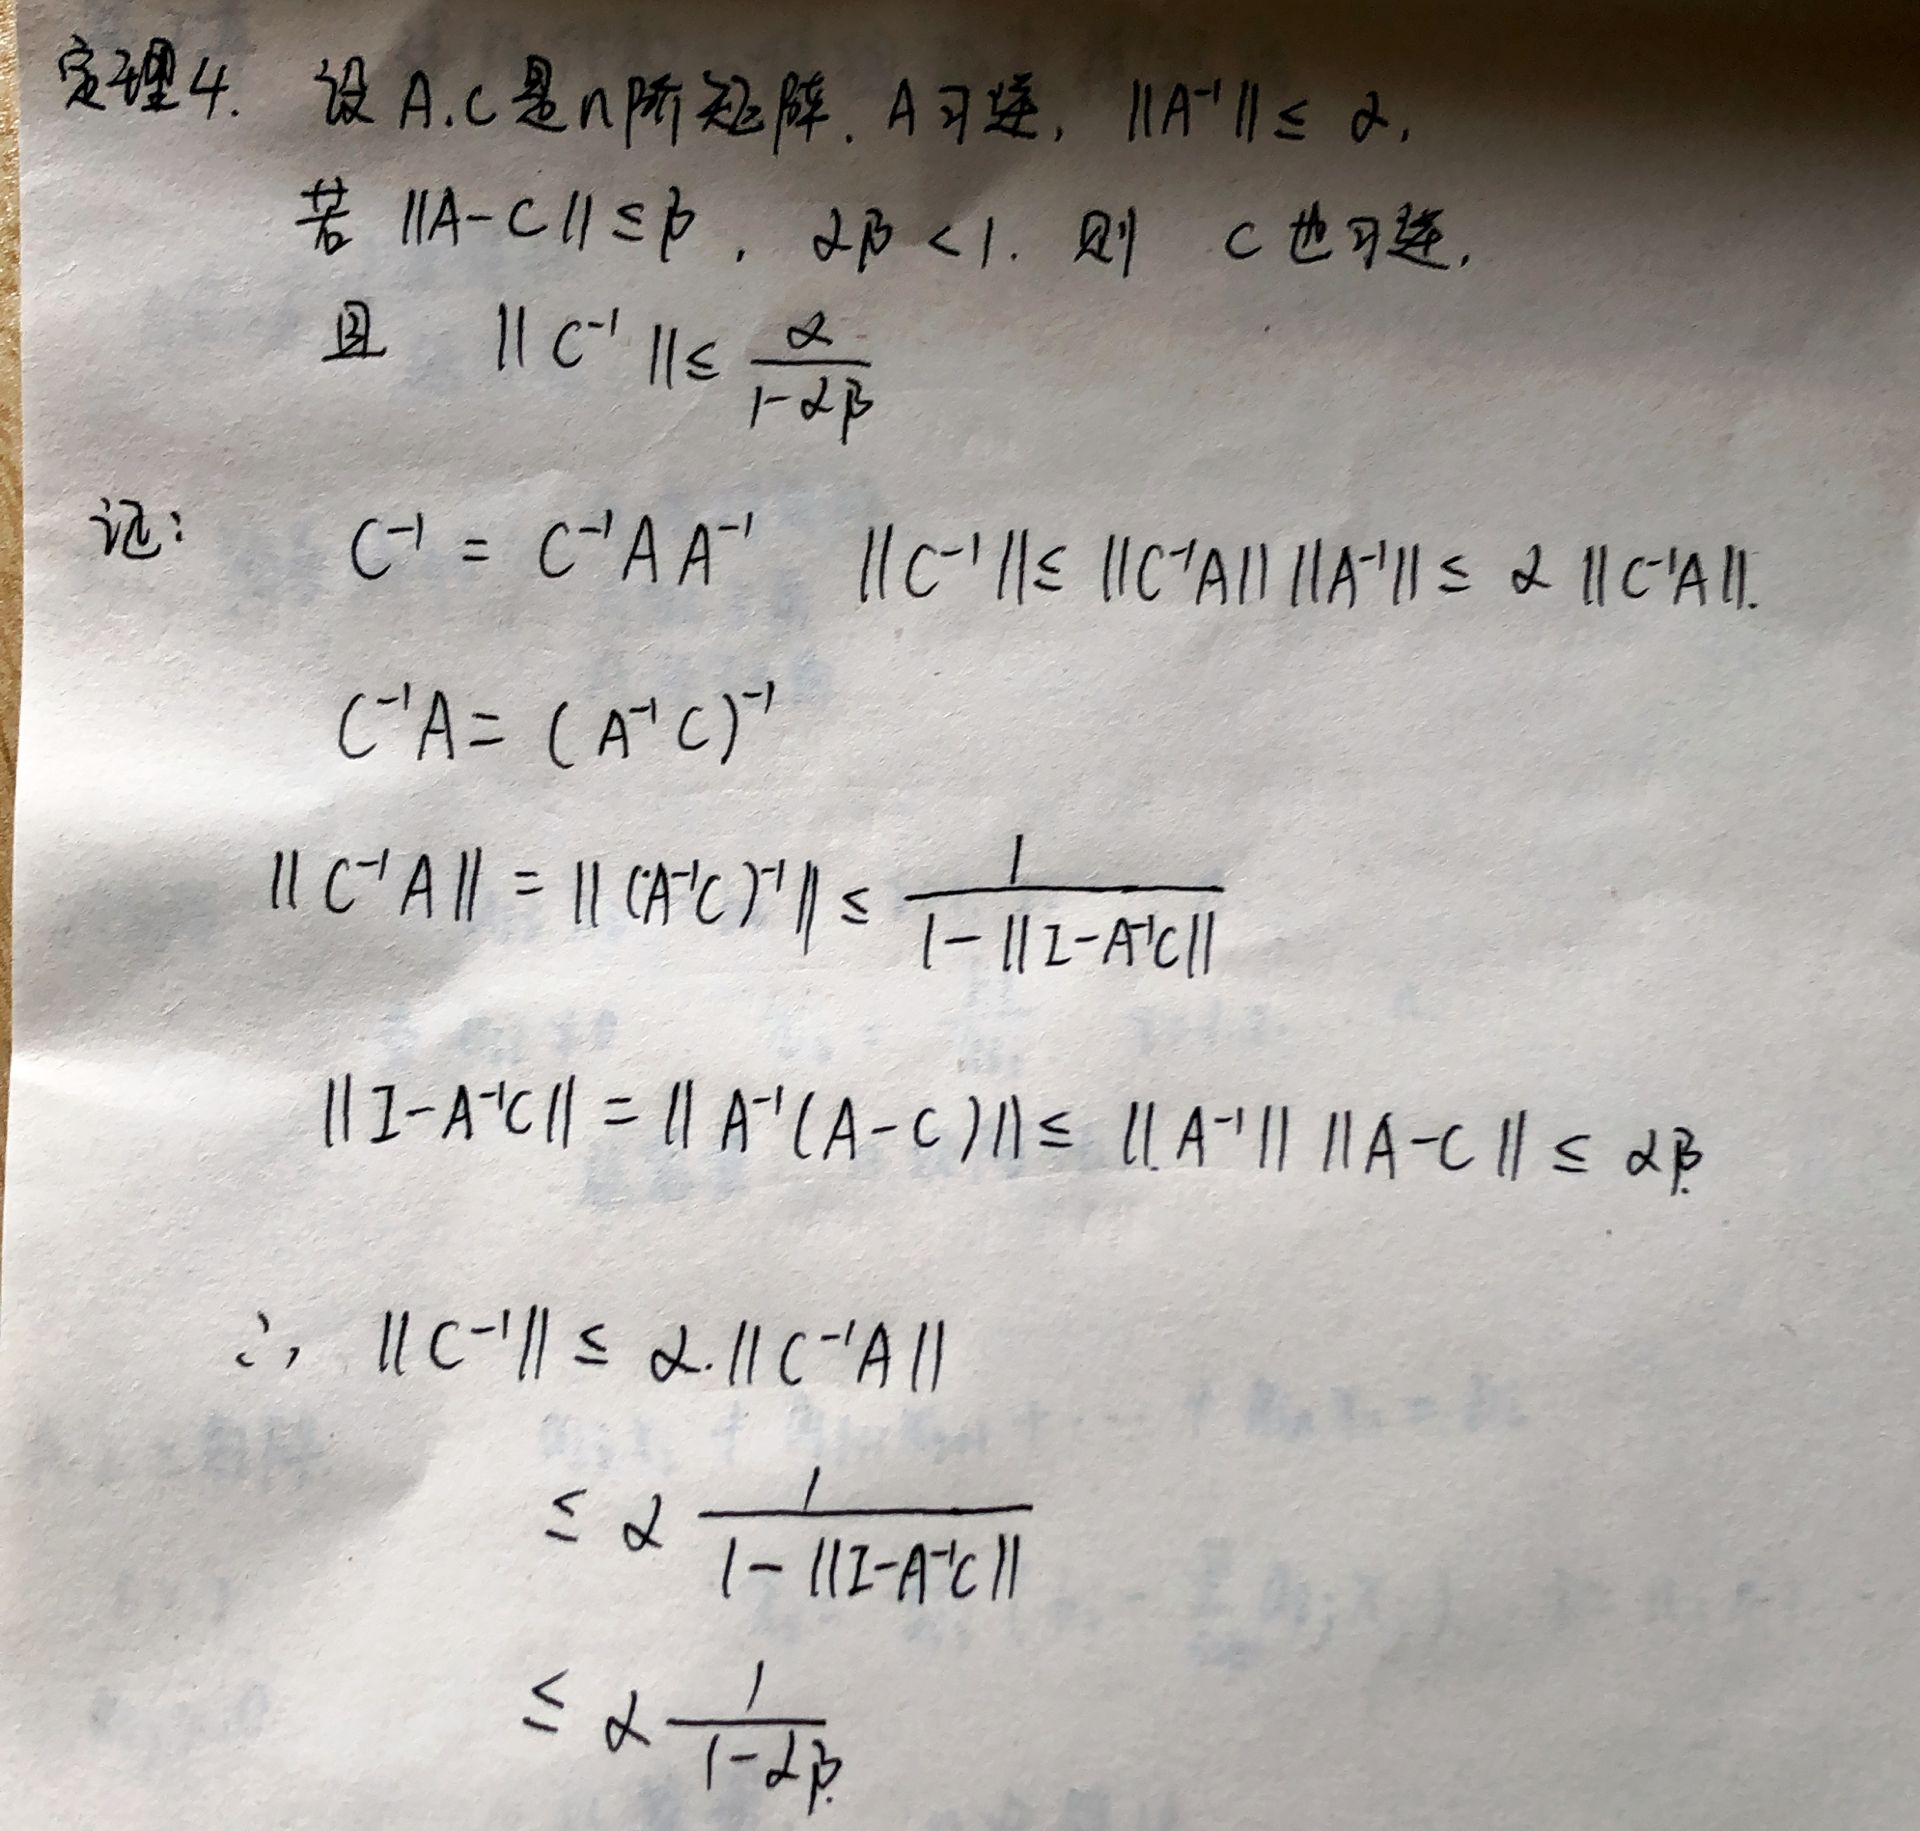 定理4. 设 A.C是n阶矩阵. A可逆, ||A⁻¹||≤ α,
若 ||A-C||≤β, αβ<1. 则 C也可逆,
且 ||C⁻¹||≤ α/(1-αβ)
证: C⁻¹ = C⁻¹AA⁻¹ ||C⁻¹||≤ ||C⁻¹A|| ||A⁻¹||≤ α ||C⁻¹A||.
C⁻¹A= (A⁻¹C)⁻¹
||C⁻¹A|| = ||(A⁻¹C)⁻¹|| ≤ 1/(1-||I-A⁻¹C||)
||I-A⁻¹C|| = ||A⁻¹(A-C)||≤ ||A⁻¹|| ||A-C|| ≤ αβ.
∴, ||C⁻¹|| ≤ α.||C⁻¹A||
≤ α 1/(1-||I-A⁻¹C||)
≤ α 1/(1-αβ.)